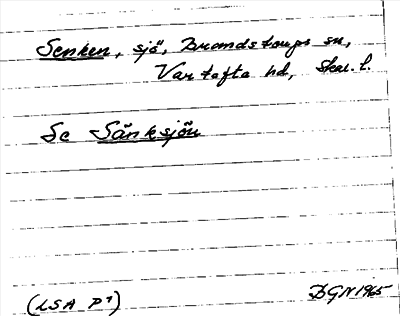 Senken, sjö, Brandstorps sn,
Vartofta hd, Skar. l.
Se Sänksjön
(LSA P1)
BGN 1965